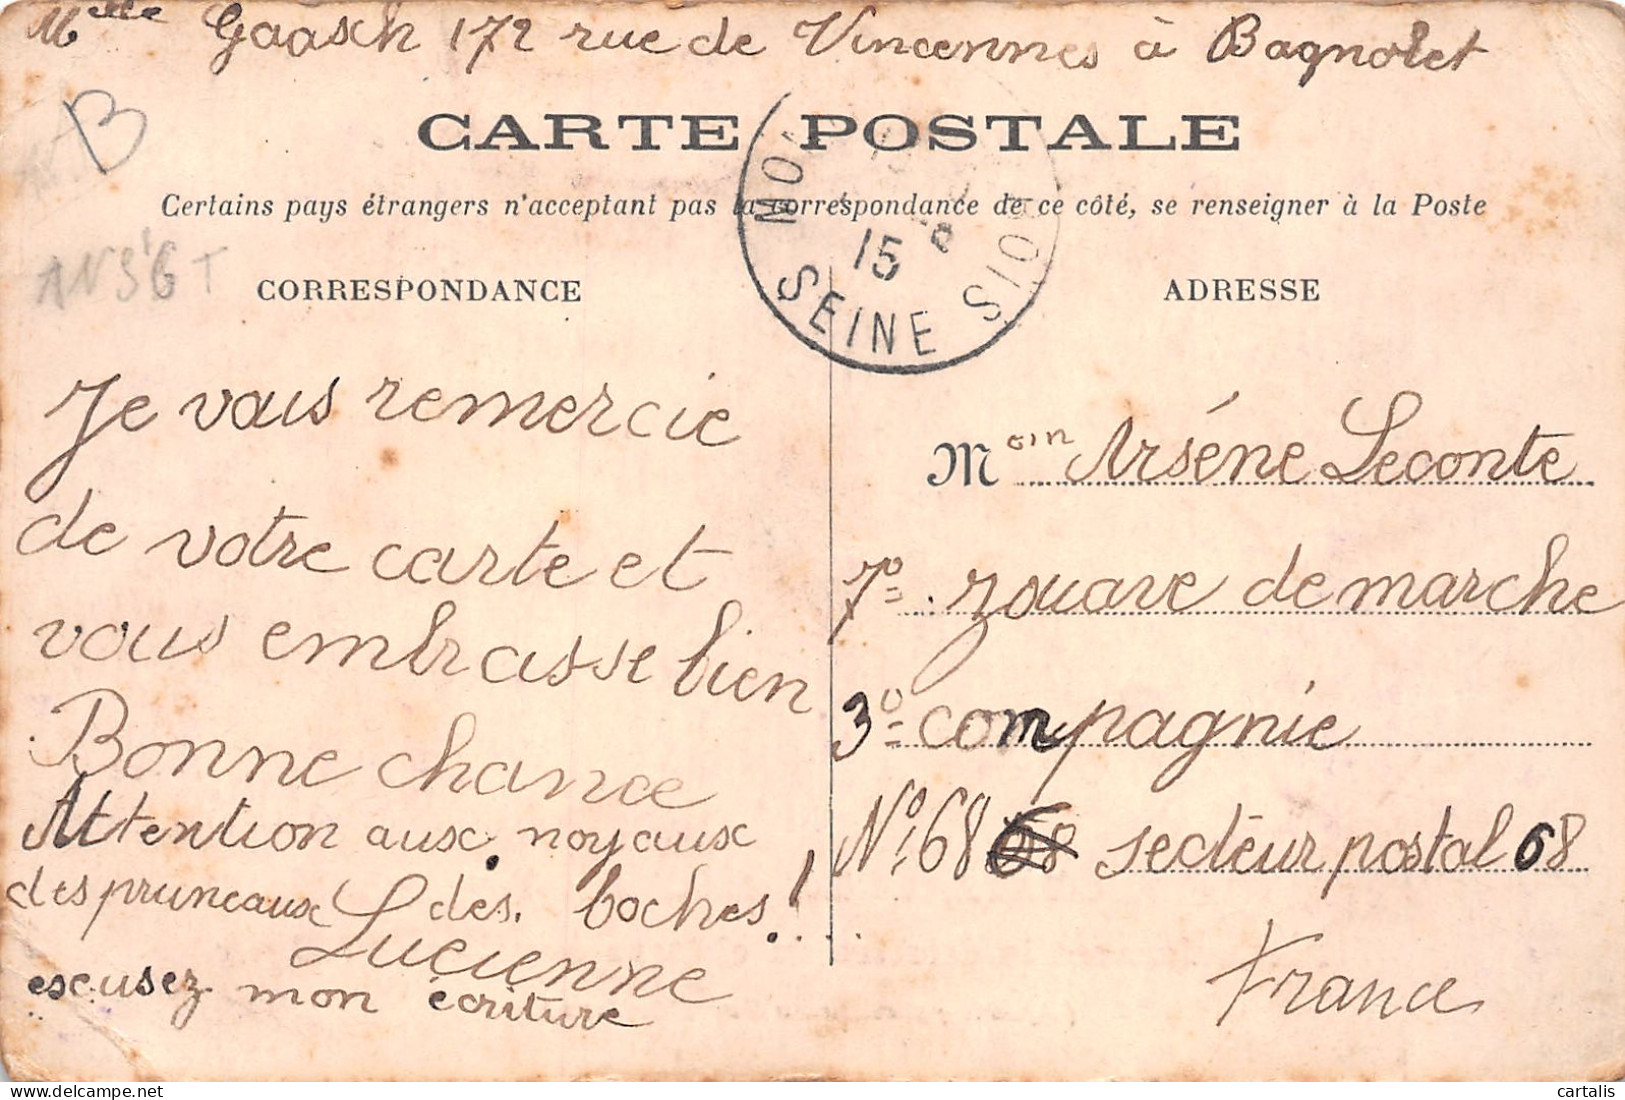 Mlle Gaasch 172 rue de Vincennes à Bagnolet
B
CARTE POSTALE
Certains pays étrangers n'acceptant pas la correspondance de ce côté, se renseigner à la Poste
15
SEINE
CORRESPONDANCE
ADRESSE
Je vous remercie
de votre carte et
vous embrasse bien
Bonne chance
Attention aux noyaux
des pruneaux des boches!...
Lucienne
escusez mon écriture
Mein Arsène Leconte
7º zouave de marche
3º compagnie
Nº 68 secteur postal 68
France
cartalis